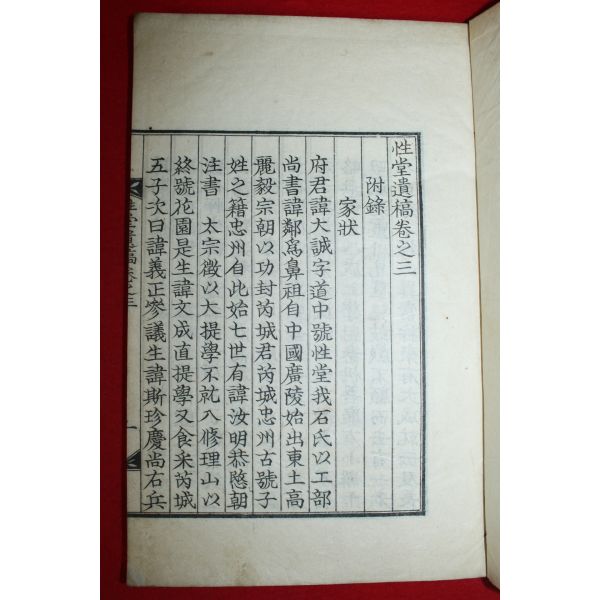 性堂遺稿卷之三
附錄
家狀
府君諱大誠字道中號性堂我石氏以工部
尚書諱鄰爲鼻祖自中國廣陵始出東土高
麗毅宗朝以功封芮城君芮城忠州古號子
姓之籍忠州自此始七世有諱汝明恭愍朝
注書 太宗徵以大提學不就入修理山以
終號花園是生諱文成直提學又食采芮城
五子次曰諱義正參議生諱斯珍慶尚右兵
性堂遺稿卷之三
一